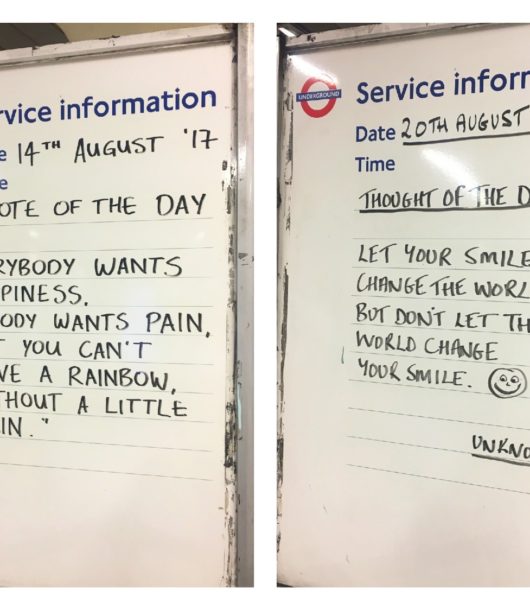 rvice information
e 14TH AUGUST '17
e
OTE OF THE DAY
RYBODY WANTS
PINESS,
ODY WANTS PAIN,
T YOU CAN'T
VE A RAINBOW,
THOUT A LITTLE
IN."
UNDERGROUND
Service inform
Date 20TH AUGUST
Time
THOUGHT OF THE D
LET YOUR SMILE
CHANGE THE WORL
BUT DON'T LET TH
WORLD CHANGE
YOUR SMILE.
UNKNO